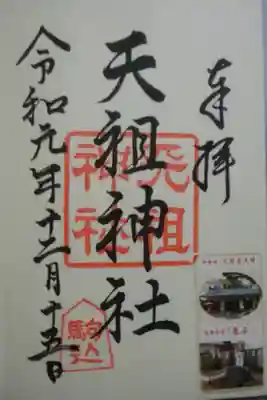 奉拝
天祖神社
天祖
神社
令和元年十二月十五日
駒込